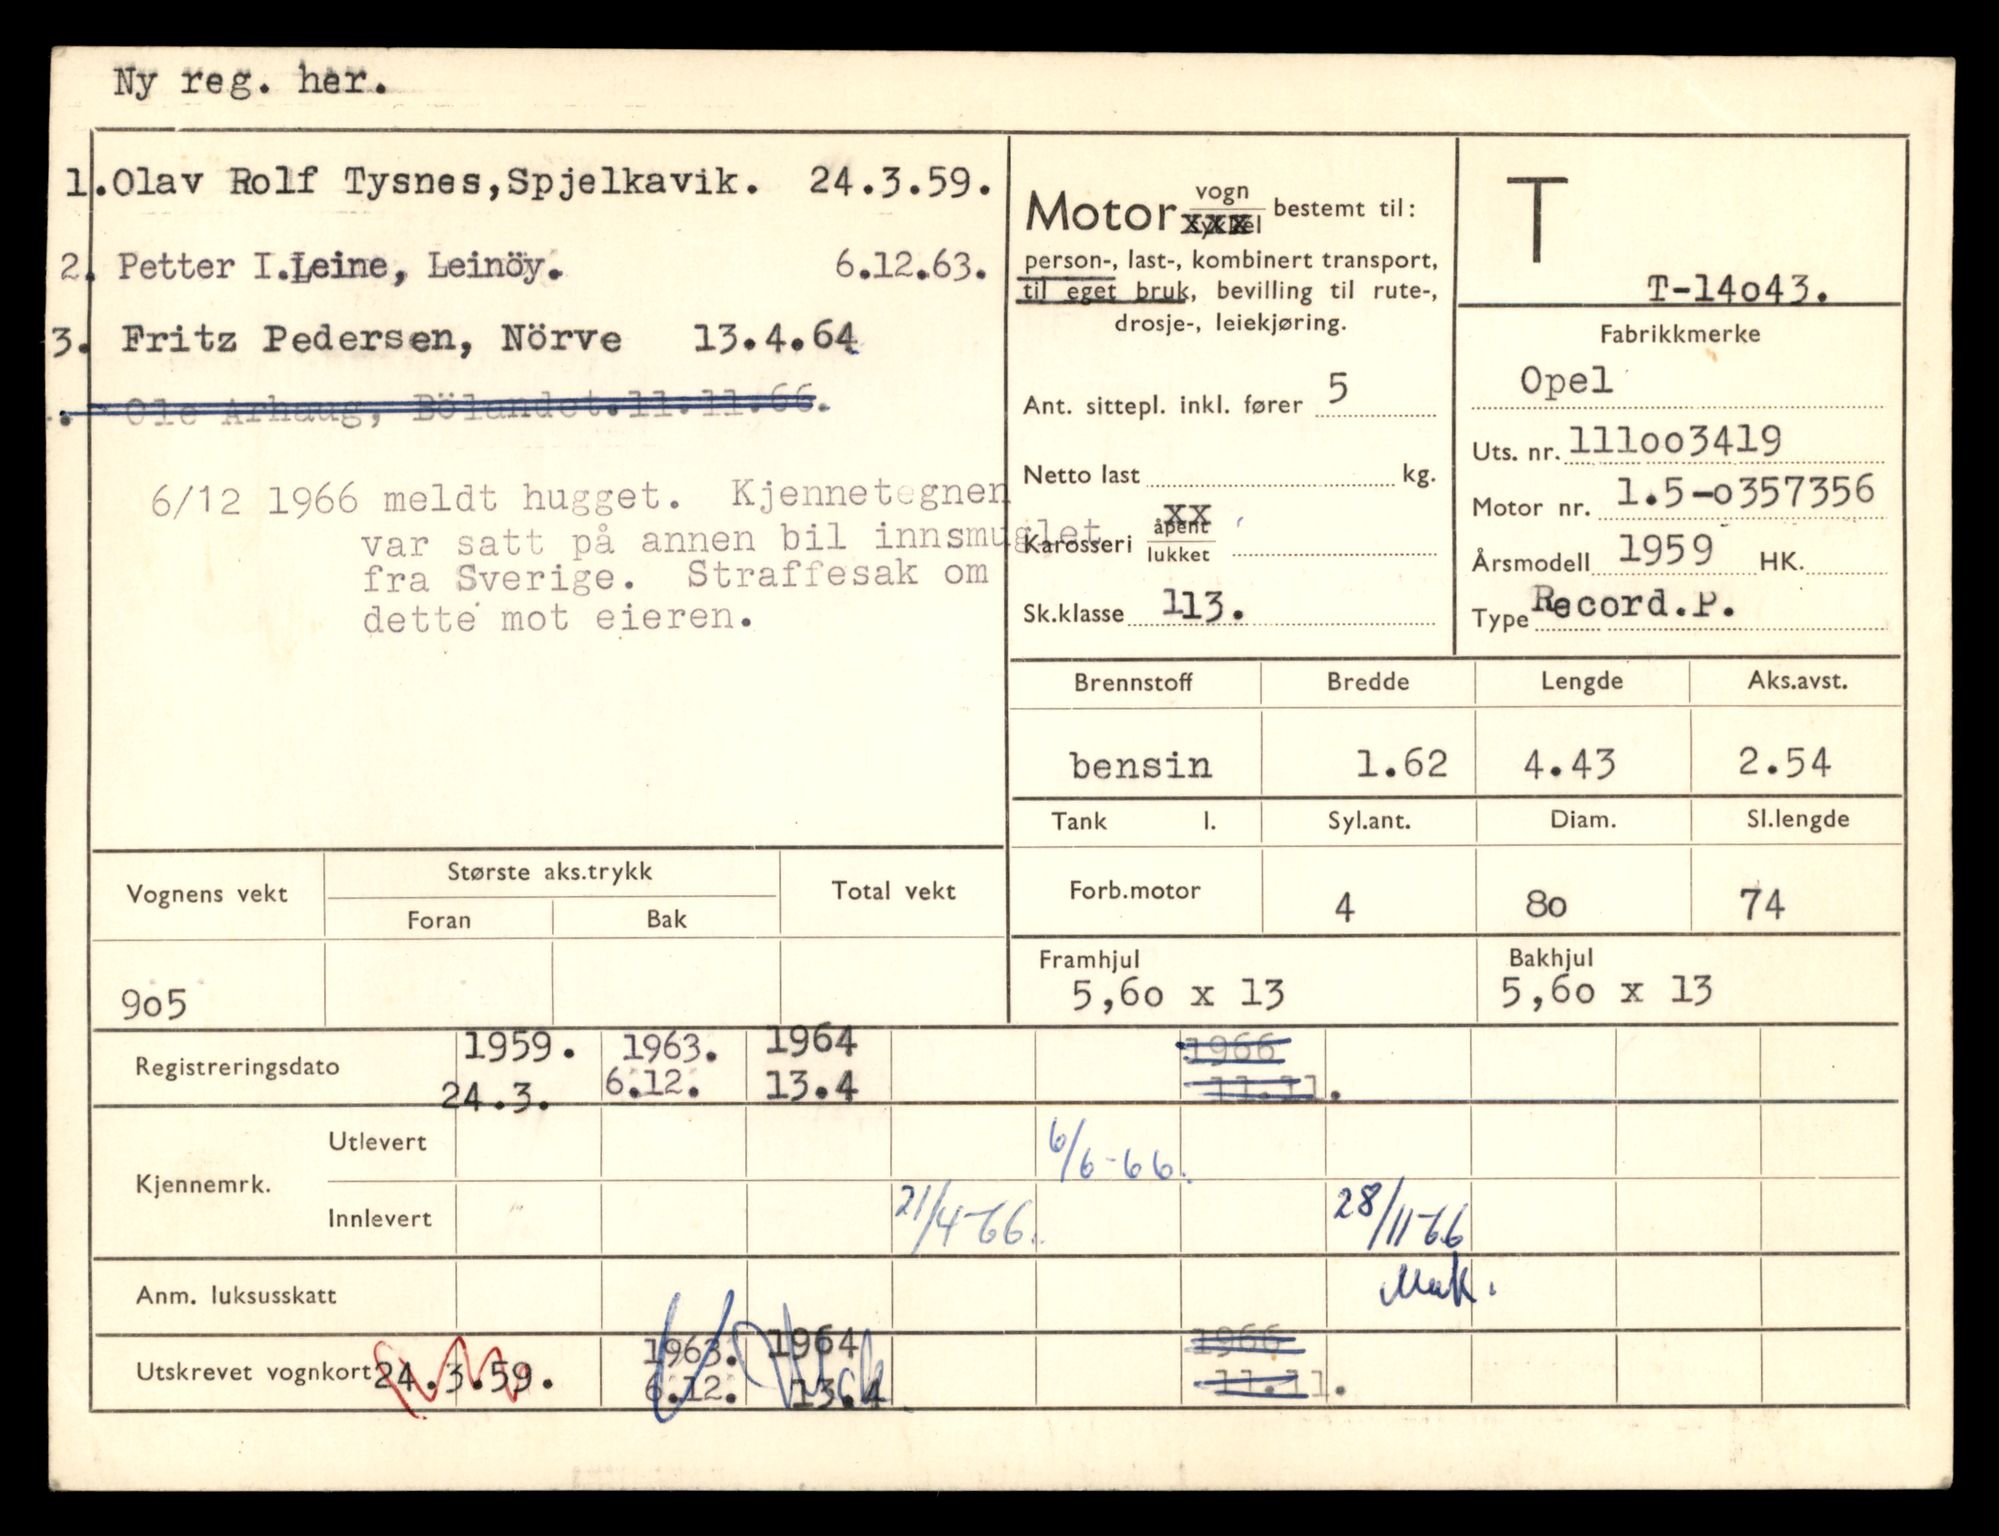 Ny reg. her.
1. Olav Rolf Tysnes, Spjelkavik. 24.3.59.
2. Petter I. Leine, Leinöy. 6.12.63.
3. Fritz Pedersen, Nörve 13.4.64
Ole Arhaug, Bölandet. 11.11.66.
6/12 1966 meldt hugget. Kjennetegnen
var satt på annen bil innsmuglet
fra Sverige. Straffesak om
dette mot eieren.
Motor vogn bestemt til:
person-, last-, kombinert transport,
til eget bruk, bevilling til rute-,
drosje-, leiekjøring.
Ant. sittepl. inkl. fører 5
Netto last kg.
Karosseri åpent xx
lukket
Sk.klasse 113.
T
T-14o43.
Fabrikkmerke
Opel
Uts. nr. 111oo3419
Motor nr. 1.5-o357356
Årsmodell 1959 HK.
Type Record.P.
Brennstoff Bredde Lengde Aks.avst.
bensin 1.62 4.43 2.54
Tank l. Syl.ant. Diam. Sl.lengde
Forb.motor 4 8o 74
Framhjul Bakhjul
5,6o x 13 5,6o x 13
Vognens vekt Største aks.trykk Total vekt
Foran Bak
9o5
Registreringsdato 1959. 1963. 1964 1966
24.3. 6.12. 13.4 11.11.
Kjennemrk. Utlevert 6/6-66.
Innlevert 21/4-66. 28/11-66
Anm. luksusskatt
Utskrevet vognkort 24.3.59. 1963. 1964 1966
6.12. 13.4 11.11.